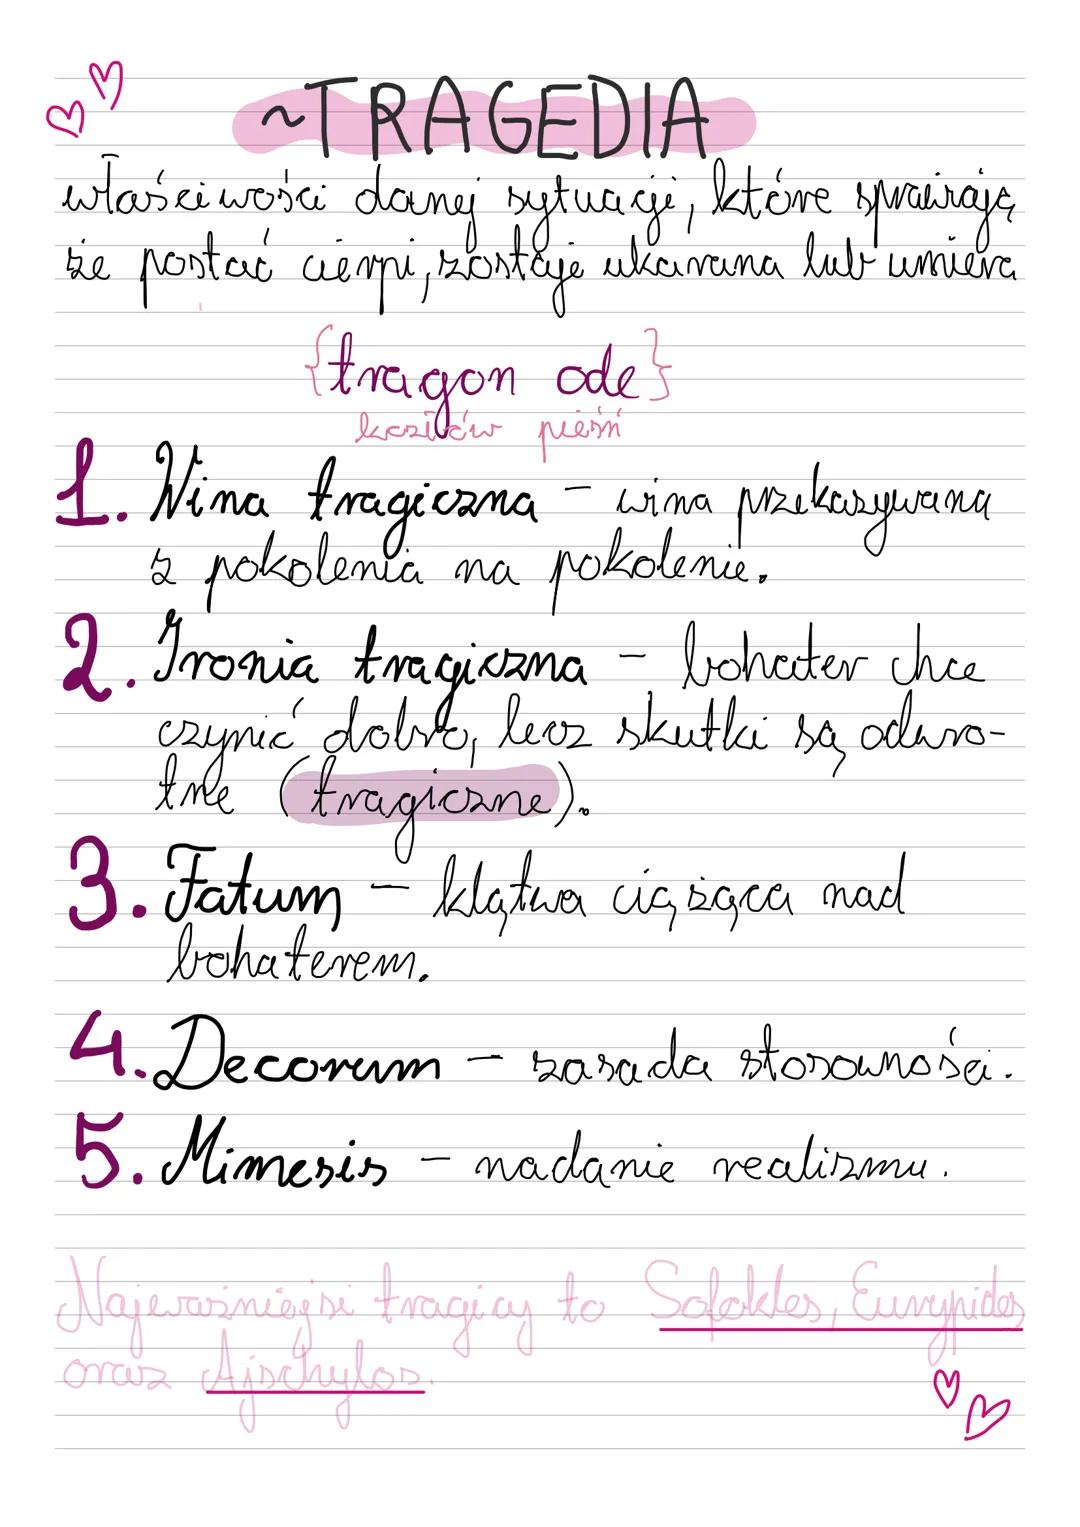 ~TRAGEDIA
właściwości danej sytuacji, które sprawiają,
że postać cierpi, zostaje ukarana lub umiera
{tragon ode}
kozłów pieśń
1. Wina tragiczna - wina przekazywana
z pokolenia na pokolenie.
2. Ironia tragiczna - bohater chce
czynić dobro, lecz skutki są odwro-
tne (tragiczne).
3. Fatum - klątwa ciążąca nad
bohaterem.
4. Decorum - zasada stosowności.
5. Mimesis - nadanie realizmu.
Najważniejsi tragicy to Sofokles, Eurypides
oraz Ajschylos.